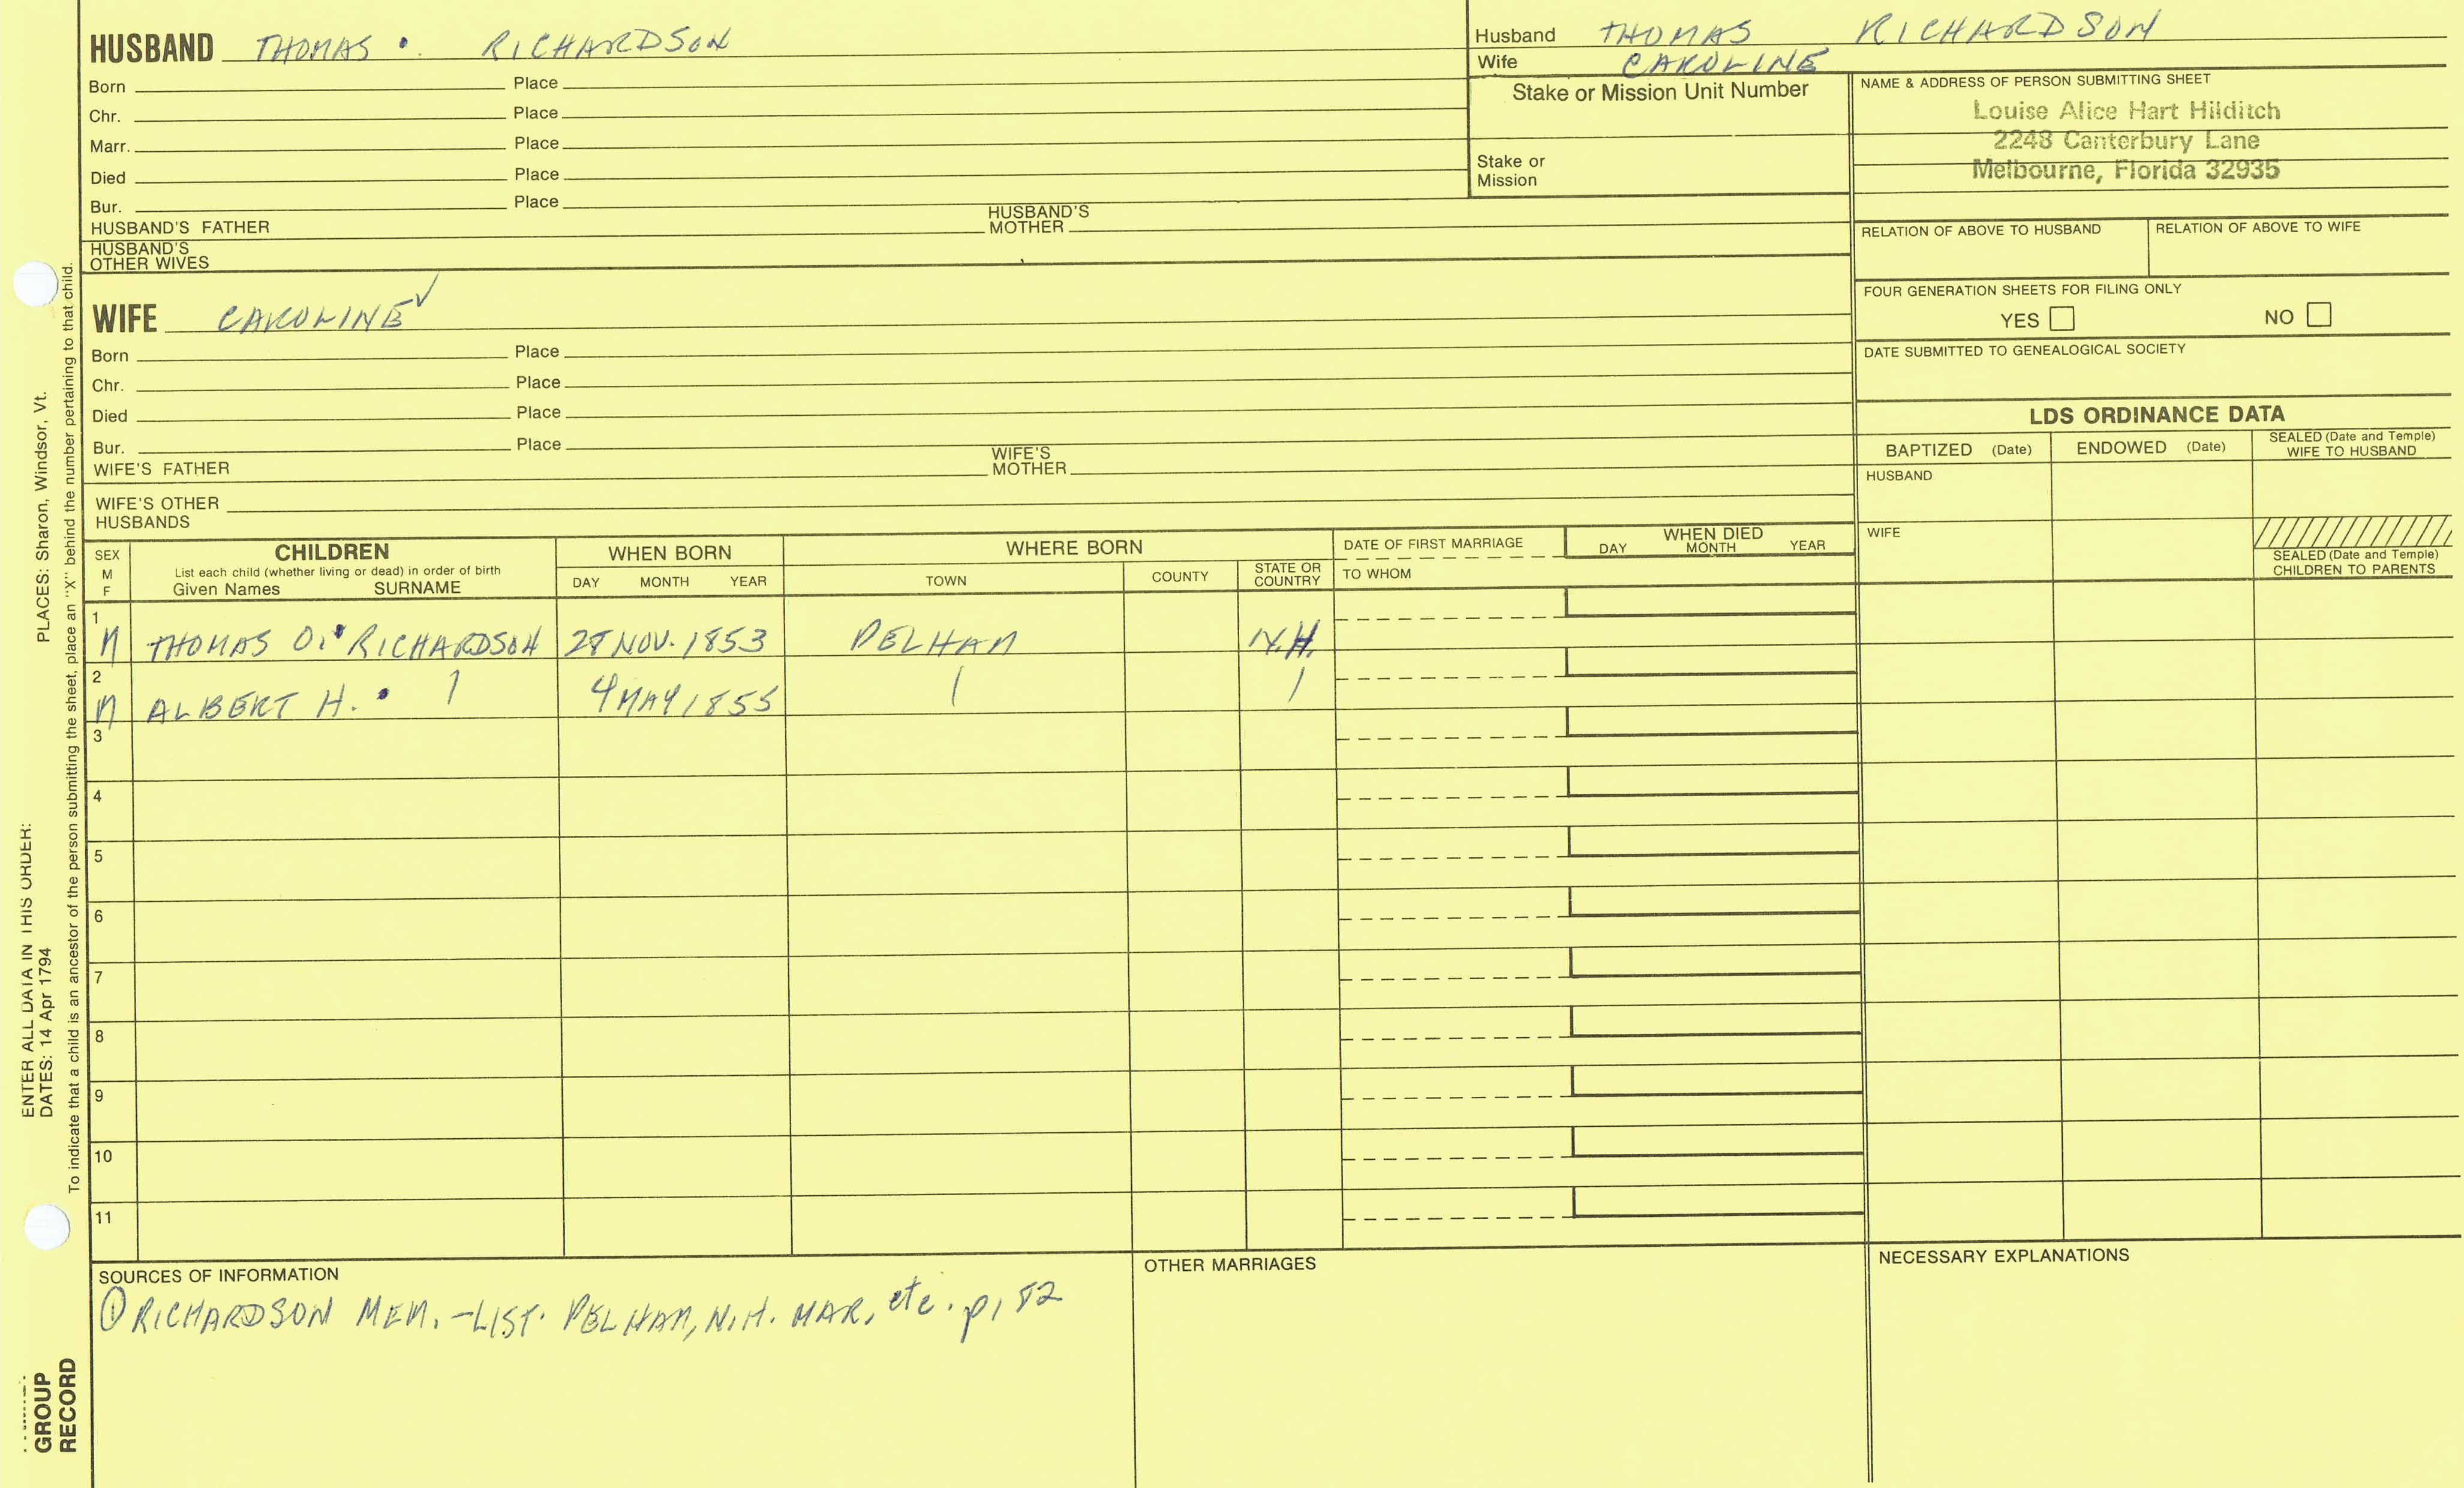 HUSBAND THOMAS . RICHARDSON
Husband THOMAS RICHARDSON
Wife CAROLINE
Born Place
Chr. Place
Marr. Place
Died Place
Bur. Place
HUSBAND'S FATHER HUSBAND'S MOTHER
HUSBAND'S OTHER WIVES
Stake or Mission Unit Number
Stake or
Mission
NAME & ADDRESS OF PERSON SUBMITTING SHEET
Louise Alice Hart Hilditch
2248 Canterbury Lane
Melbourne, Florida 32935
RELATION OF ABOVE TO HUSBAND RELATION OF ABOVE TO WIFE
FOUR GENERATION SHEETS FOR FILING ONLY
YES NO
DATE SUBMITTED TO GENEALOGICAL SOCIETY
WIFE CAROLINE ✓
Born Place
Chr. Place
Died Place
Bur. Place
WIFE'S FATHER WIFE'S MOTHER
WIFE'S OTHER
HUSBANDS
LDS ORDINANCE DATA
BAPTIZED (Date) ENDOWED (Date) SEALED (Date and Temple) WIFE TO HUSBAND
HUSBAND
WIFE
SEALED (Date and Temple)
CHILDREN TO PARENTS
SEX
M
F
CHILDREN
List each child (whether living or dead) in order of birth
Given Names SURNAME
WHEN BORN
DAY MONTH YEAR
WHERE BORN
TOWN COUNTY STATE OR COUNTRY
DATE OF FIRST MARRIAGE
TO WHOM
WHEN DIED
DAY MONTH YEAR
1
M THOMAS O. RICHARDSON 28 NOV. 1853 PELHAM N.H.
2
M ALBERT H. 4 MAY 1855
3
4
5
6
7
8
9
10
11
SOURCES OF INFORMATION
① RICHARDSON MEM. - LIST. PELHAM, N.H. MAR, etc. p, 82
OTHER MARRIAGES
NECESSARY EXPLANATIONS
ENTER ALL DATA IN THIS ORDER:
PLACES: Sharon, Windsor, Vt.
DATES: 14 Apr 1794
To indicate that a child is an ancestor of the person submitting the sheet, place an "X" behind the number pertaining to that child.
GROUP
RECORD